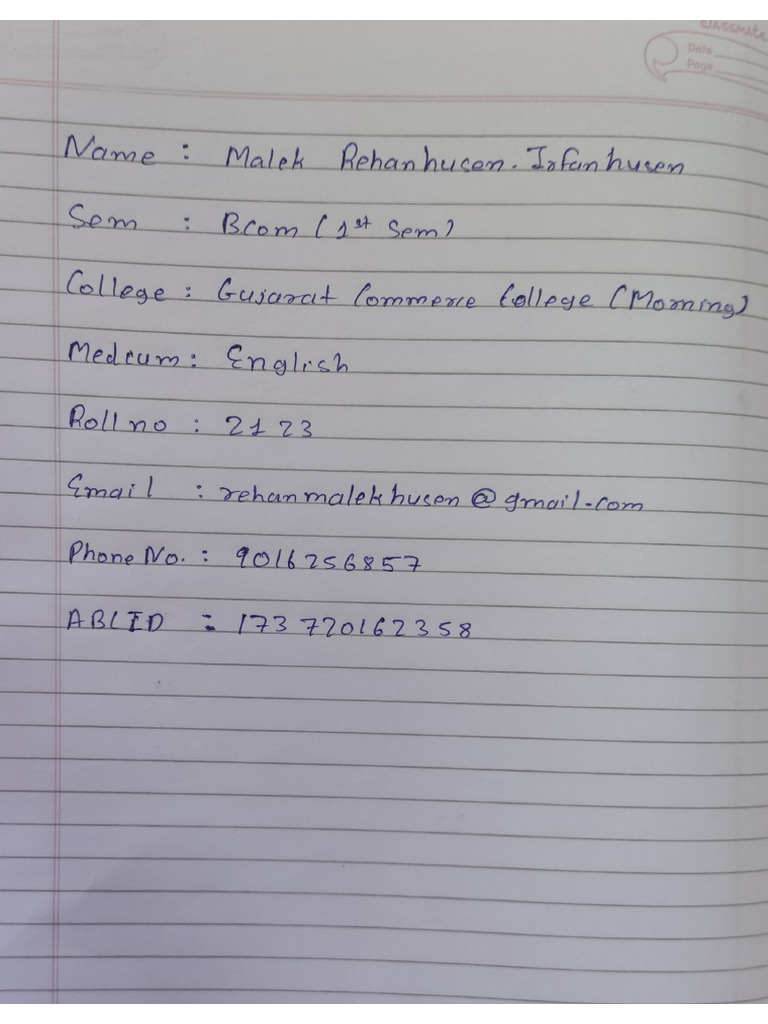 classmate
Date
Page
Name : Malek Rehanhusen. Irfanhusen
Sem : Bcom (1st Sem)
College : Gujarat Commerce College (Morning)
Medium : English
Roll no : 2123
Email : rehanmalekhusen@gmail.com
Phone No. : 9016256857
ABCID : 173720162358